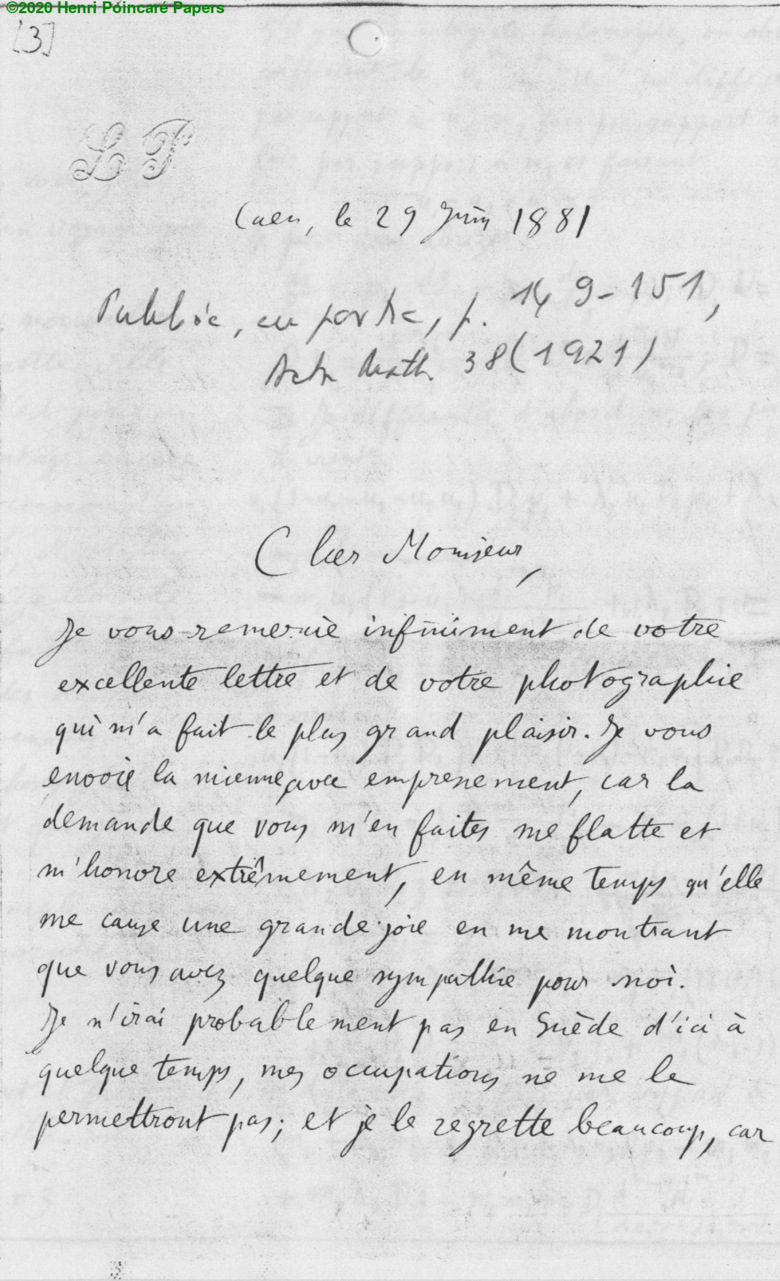 ©2020 Henri Poincaré Papers
[3]
LP
Caen, le 29 Juin 1881
Publiée, en partie, p. 149-151,
Acta Math. 38 (1921)
Cher Monsieur,
Je vous remercie infiniment de votre
excellente lettre et de votre photographie
qui m'a fait le plus grand plaisir. Je vous
envoie la mienne avec empressement, car la
demande que vous m'en faites me flatte et
m'honore extrêmement, en même temps qu'elle
me cause une grande joie en me montrant
que vous avez quelque sympathie pour moi.
Je n'irai probablement pas en Suède d'ici à
quelque temps, mes occupations ne me le
permettront pas; et je le regrette beaucoup, car